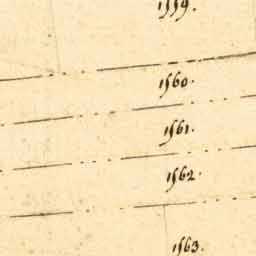 1559.
1560.
1561.
1562.
1563.